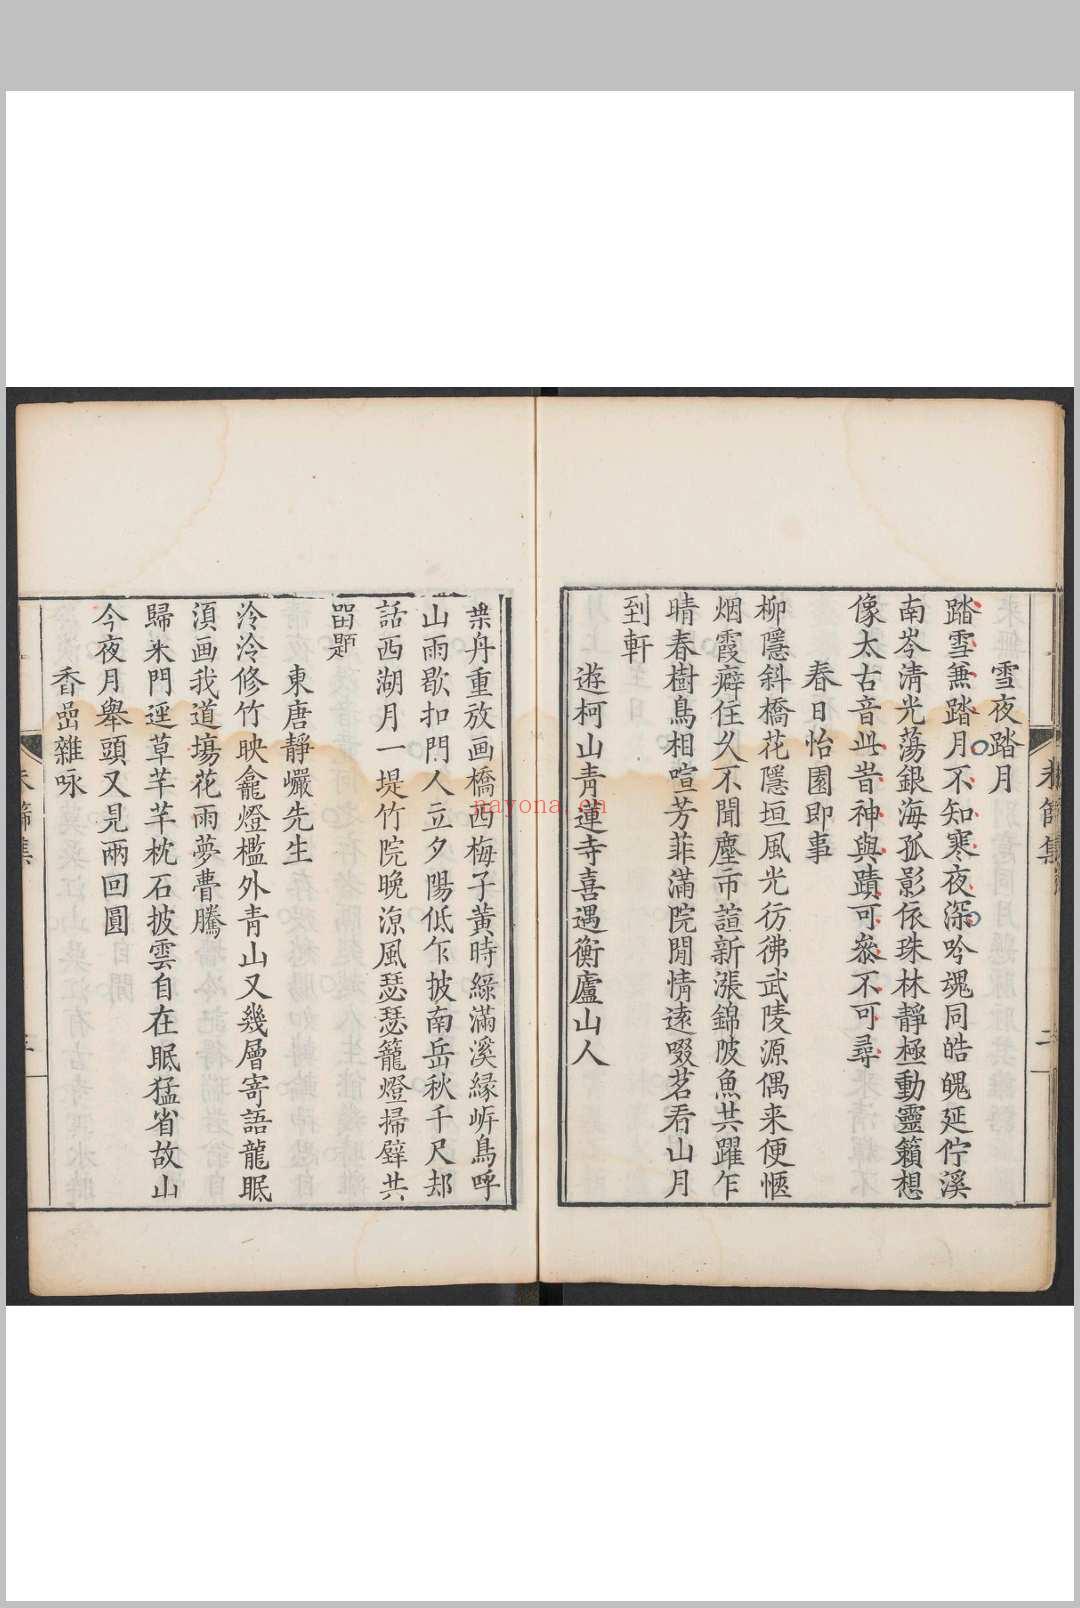 雪夜踏月
踏雪兼踏月不知寒夜深吟魂同皓魄延佇溪
南岑清光蕩銀海孤影依珠林靜極動靈籟想
像太古音此昔神與蹟可叅不可尋
春日怡園即事
柳隱斜橋花隱垣風光彷彿武陵源偶来便愜
烟霞癖住乆不聞塵市諠新漲錦陂魚共躍乍
晴春樹鳥相喧芳菲滿院閒情遠啜茗看山月
到軒
遊柯山青蓮寺喜遇衡廬山人
葉舟重放画橋西梅子黃時綠滿溪縁岍鳥呼
山雨歇扣門人立夕陽低乍披南岳秋千尺却
話西湖月一堤竹院晚涼風瑟瑟籠燈掃壁共
畱題
東唐靜巘先生
泠泠修竹映龕燈檻外青山又幾層寄語龍眠
湏画我道塲花雨夢瞢騰
歸来門逕草芊芊枕石披雲自在眠猛省故山
今夜月舉頭又見兩回圓
香嵒雜咏
二
nayona.cn